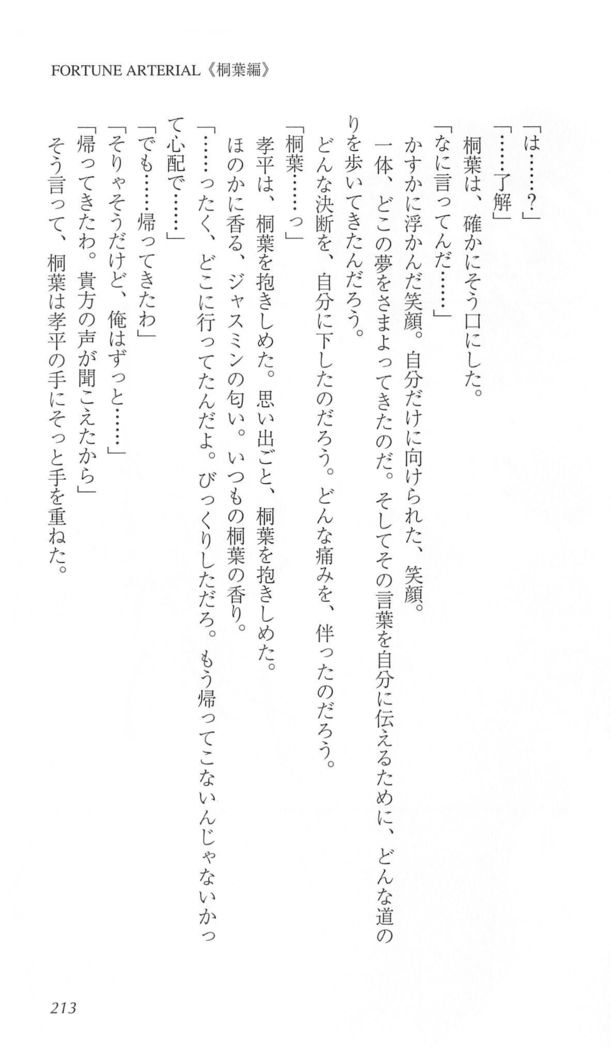 FORTUNE ARTERIAL《桐葉編》
「は……？」
「……了解」
　桐葉は、確かにそう口にした。
「なに言ってんだ……」
　かすかに浮かんだ笑顔。自分だけに向けられた、笑顔。
　一体、どこの夢をさまよってきたのだ。そしてその言葉を自分に伝えるために、どんな道の
りを歩いてきたんだろう。
　どんな決断を、自分に下したのだろう。どんな痛みを、伴ったのだろう。
「桐葉……っ」
　孝平は、桐葉を抱きしめた。思い出ごと、桐葉を抱きしめた。
　ほのかに香る、ジャスミンの匂い。いつもの桐葉の香り。
「……ったく、どこに行ってたんだよ。びっくりしただろ。もう帰ってこないんじゃないかっ
て心配で……」
「でも……帰ってきたわ」
「そりゃそうだけど、俺はずっと……」
「帰ってきたわ。貴方の声が聞こえたから」
　そう言って、桐葉は孝平の手にそっと手を重ねた。
213